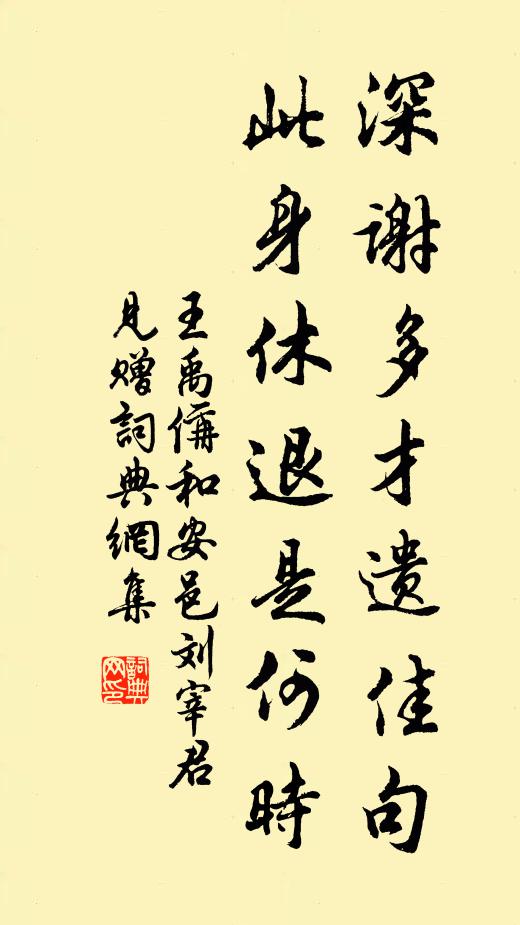 深谢多才遗佳句
此身休退是何時
王禹偁和安邑刘宰君
見赠詞典網集
詞典
网印